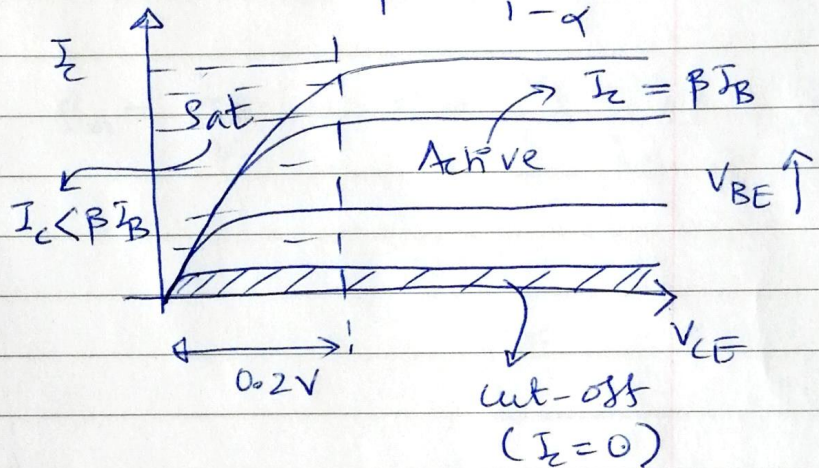 1 - α
I_c
I_c = βI_B
Sat
Active
V_BE ↑
I_c < βI_B
V_CE
0.2V
cut-off
(I_c = 0)